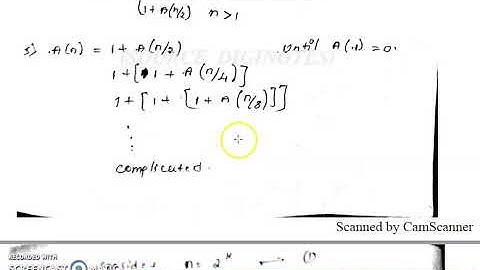 (1+A(n/2) n>1
5) A(n) = 1 + A(n/2) until A(1)=0.
1+[1 + A(n/4)]
1+[1+ [1+A(n/8)]]
⋮
complicated.
Scanned by CamScanner
RECORDED WITH
n= 2 (1)